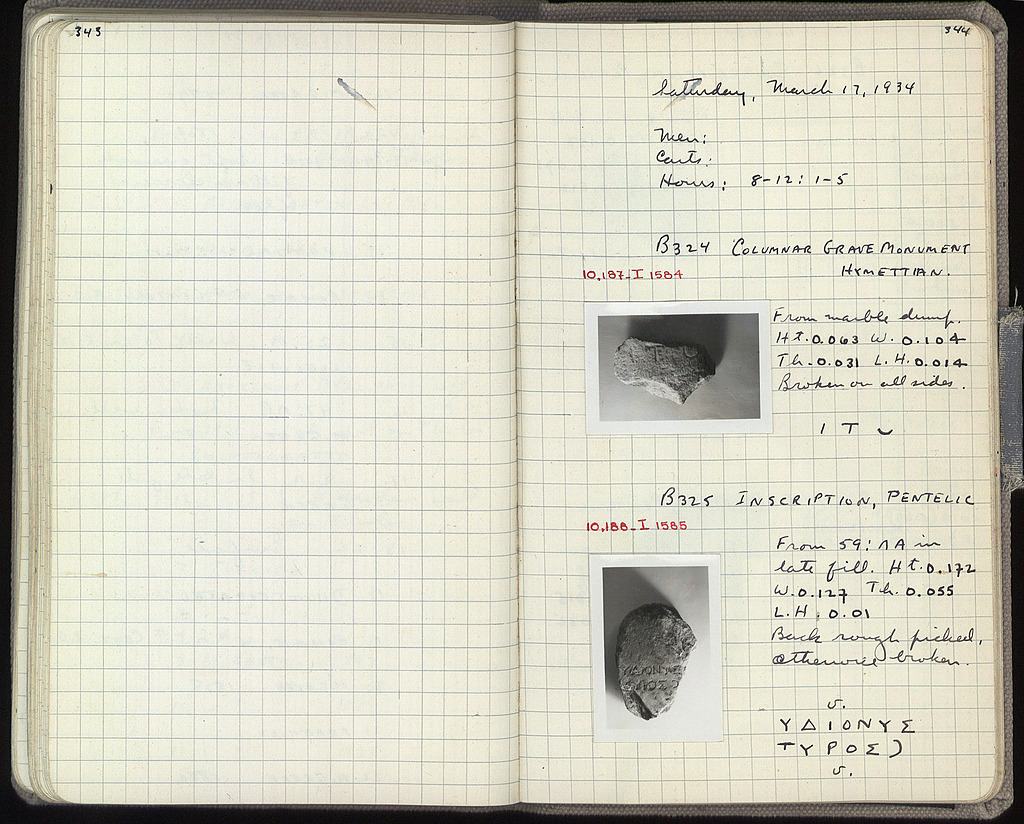 343
344
Saturday, March 17, 1934
Men:
Carts:
Hours: 8-12: 1-5
B324 COLUMNAR GRAVE MONUMENT
HYMETTIAN.
10,187-I 1584
From marble dump.
Ht. 0.063 W. 0.104
Th. 0.031 L.H. 0.014
Broken on all sides.
Ι Τ
B325 INSCRIPTION, PENTELIC
10,188-I 1585
From 59: ΛΑ in
late fill. Ht. 0.172
W. 0.127 Th. 0.055
L.H. 0.01
Back rough picked,
otherwise broken.
v.
ΥΔΙΟΝΥΣ
ΤΥΡΟΣ)
v.